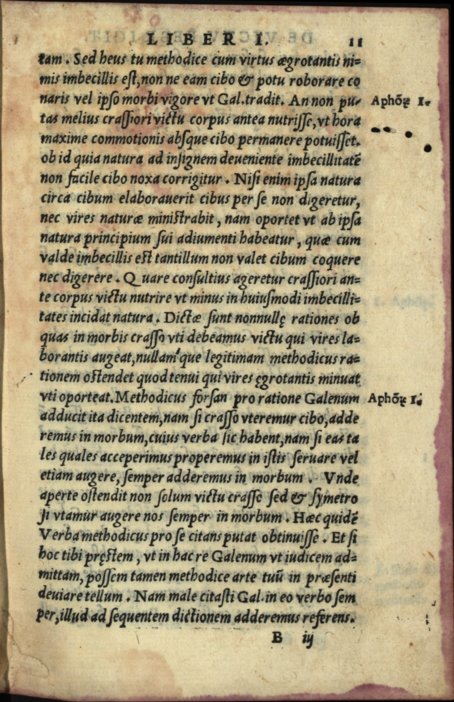 LIBER I. 11
tam. Sed heus tu methodice cum virtus ægrotantis ni-
mis imbecillis est, non ne eam cibo & potu roborare co
naris vel ipso morbi vigore vt Gal. tradit. An non pu-
tas melius crassiori victu corpus antea nutrisse, vt hora
maxime commotionis absque cibo permanere potuisset.
ob id quia natura ad insignem deueniente imbecillitatē
non facile cibo noxa corrigitur. Nisi enim ipsa natura
circa cibum elaborauerit cibus per se non digeretur,
nec vires naturæ ministrabit, nam oportet vt ab ipsa
natura principium sui adiumenti habeatur, quæ cum
valde imbecillis est tantillum non valet cibum coquere
nec digerere. Quare consultius ageretur crassiori an-
te corpus victu nutrire vt minus in huiusmodi imbecilli-
tates incidat natura. Dictæ sunt nonnullę rationes ob
quas in morbis crasso vti debeamus victu qui vires la-
borantis augeat, nullam'que legitimam methodicus ra-
tionem ostendet quod tenui qui vires ęgrotantis minuat
vti oporteat. Methodicus forsan pro ratione Galenum
adducit ita dicentem, nam si crasso vteremur cibo, adde
remus in morbum, cuius verba sic habent, nam si eas ta
les quales acceperimus properemus in istis seruare vel
etiam augere, semper adderemus in morbum. Vnde
aperte ostendit non solum victu crasso sed & symetro
si vtamur augere nos semper in morbum. Hæc quidē
Verba methodicus pro se citans putat obtinuisse. Et si
hoc tibi pręstem, vt in hac re Galenum vt iudicem ad-
mittam, possem tamen methodice arte tuū in præsenti
deuiare tellum. Nam male citasti Gal. in eo verbo sem
per, illud ad sequentem dictionem adderemus referens.
B iij
Aphõꝝ 1.
Aphõꝝ 1.